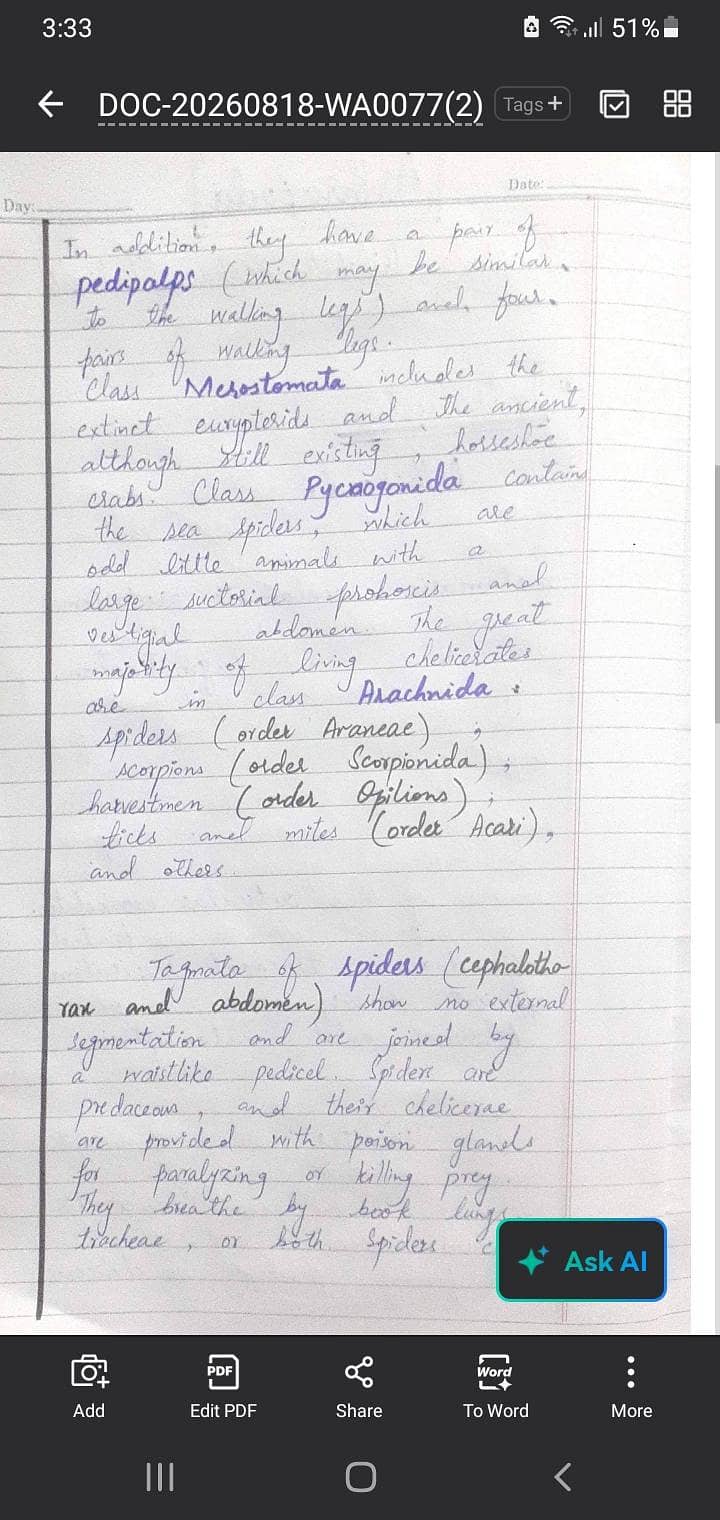 3:33
51%
DOC-20260818-WA0077(2)
Tags+
Day:
Date:
In addition, they have a pair of
pedipalps (which may be similar
to the walling legs) and four
pairs of walking legs.
Class Merostomata includes the
extinct eurypterids and the ancient,
although still existing, horseshoe
crabs. Class Pycnogonida contains
the sea spiders, which are
odd little animals with a
large suctorial proboscis and
vestigial abdomen. The great
majority of living chelicerates
are in class Arachnida:
spiders (order Araneae);
scorpions (order Scorpionida);
harvestmen (order Opilions);
ticks and mites (order Acari),
and others.
Tagmata of spiders (cephalotho
rax and abdomen) show no external
segmentation and are joined by
a waistlike pedicel. Spiders are
predaceous, and their chelicerae
are provided with poison glands
for paralyzing or killing prey.
They breathe by book lungs,
tracheae, or both. Spiders
Ask AI
Add
Edit PDF
Share
To Word
More
PDF
Word